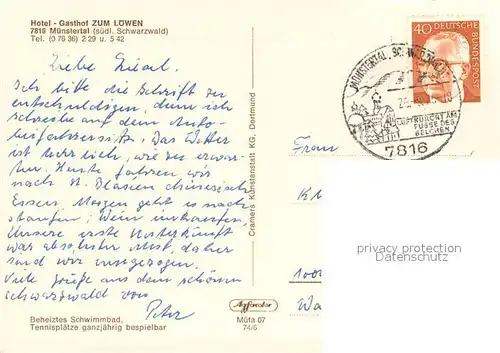 Hotel - Gasthof ZUM LÖWEN
7816 Münstertal (südl. Schwarzwald)
Tel. (0 76 36) 2 29 u. 5 42
Liebe
Ich bitte die Schrift zu
entschuldigen, denn ich
schreibe auf dem Auto-
beifahrersitz. Das Wetter
ist herrlich, wie zu erwar-
ten. Heute fahren wir
nach St. Blasien chinesisch
Essen. Morgen geht es nach
Staufen; Wein
Unsere erste Unterkunft
war absoluter Mist, daher
sind wir umgezogen.
Viele Grüße aus dem schönen
Schwarzwald von
Peter
Beheiztes Schwimmbad,
Tennisplätze ganzjährig bespielbar
Cramers Kunstanstalt KG, Dortmund
Agfacolor
Müta 07
74/6
MÜNSTERTAL, SCHWARZWALD
LUFTKURORT AM
FUSSE DES
BELCHEN
7816
40
DEUTSCHE
BUNDESPOST
Frau
privacy protection
Datenschutz